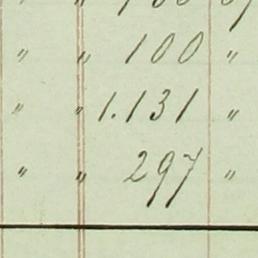 " " 100 "
" " 1.131 "
" " 297 "